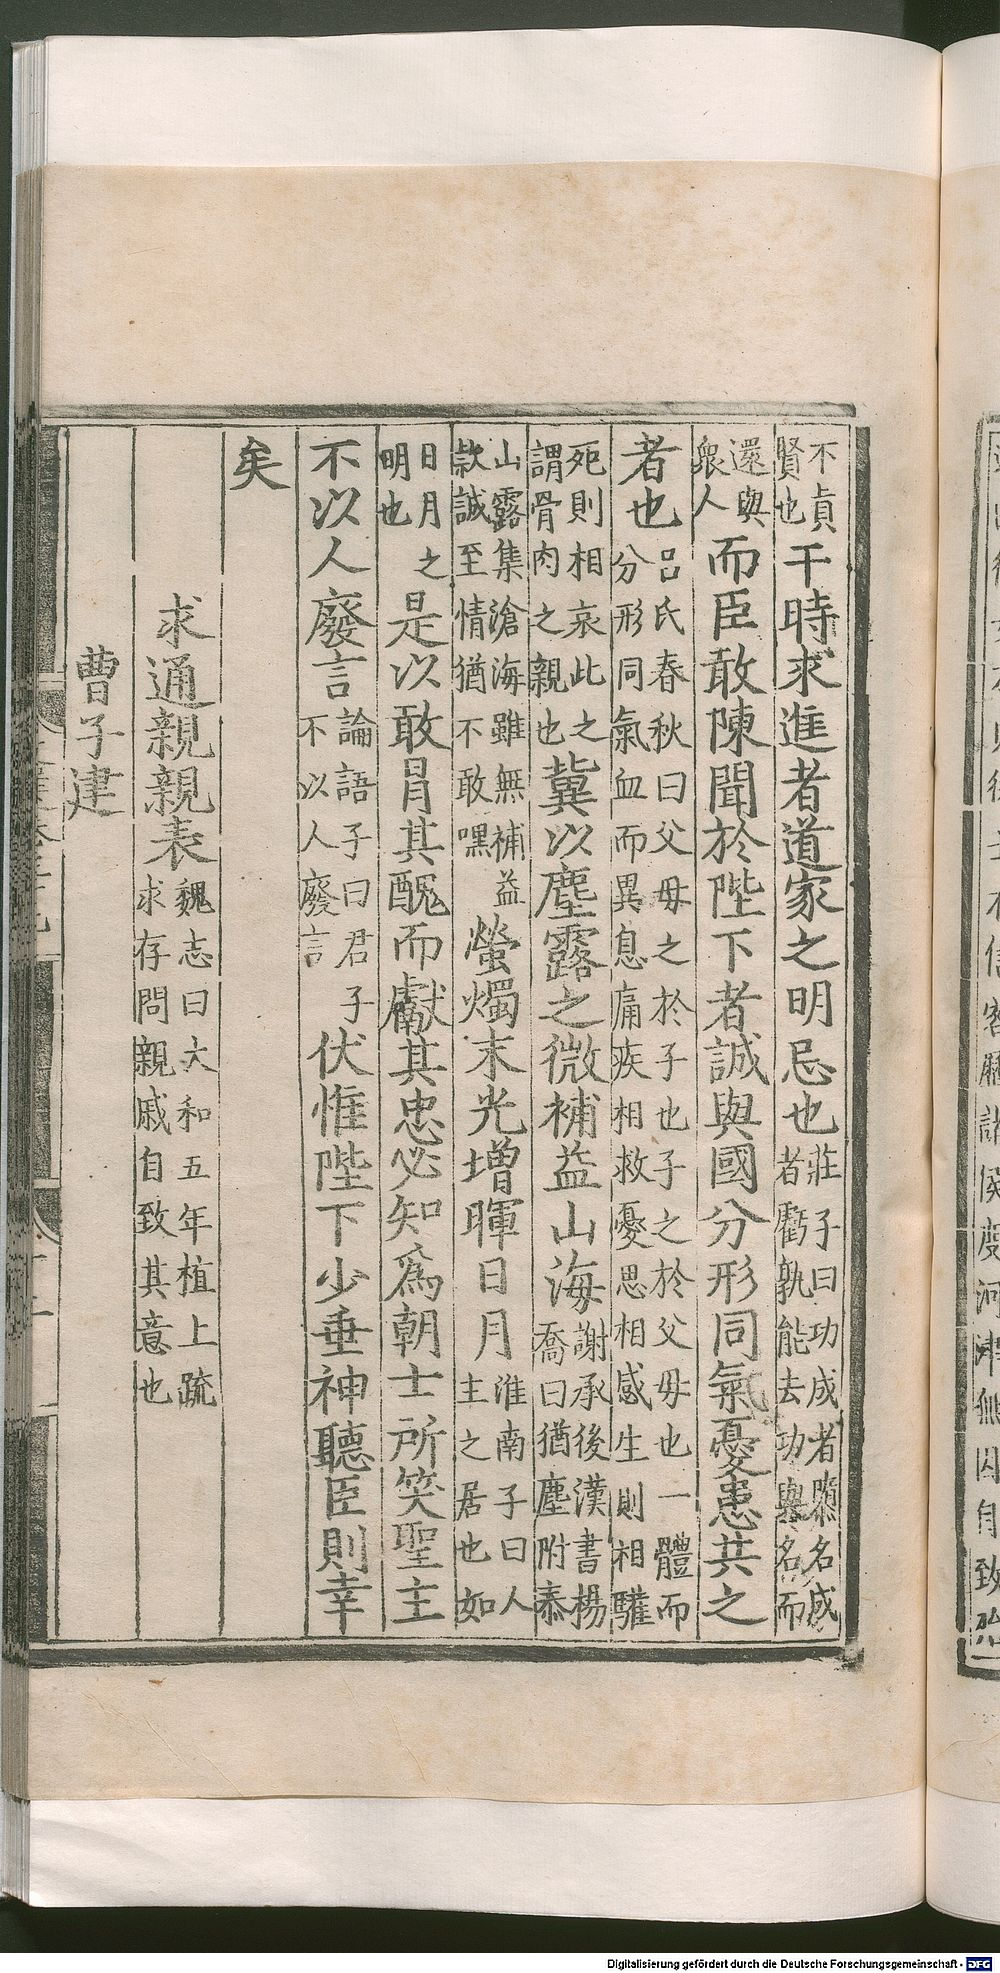 不貞賢也干時求進者道家之明忌也莊子曰功成者隳名成者虧孰能去功與名而
還與衆人而臣敢陳聞於陛下者誠與國分形同氣憂患共之
者也呂氏春秋曰父母之於子也子之於父母也一體而分形同氣血而異息痛疾相救憂思相感生則相驩
死則相哀此之謂骨肉之親也冀以塵露之微補益山海謝承後漢書楊喬曰猶塵附泰
山露集滄海雖無補益款誠至情猶不敢嘿螢燭末光增暉日月淮南子曰人主之居也如
日月之明也是以敢冒其醜而獻其忠必知爲朝士所笑聖主
不以人廢言論語子曰君子不以人廢言伏惟陛下少垂神聽臣則幸
矣
求通親親表魏志曰太和五年植上疏求存問親戚自致其意也
曹子建
Digitalisierung gefördert durch die Deutsche Forschungsgemeinschaft - DFG